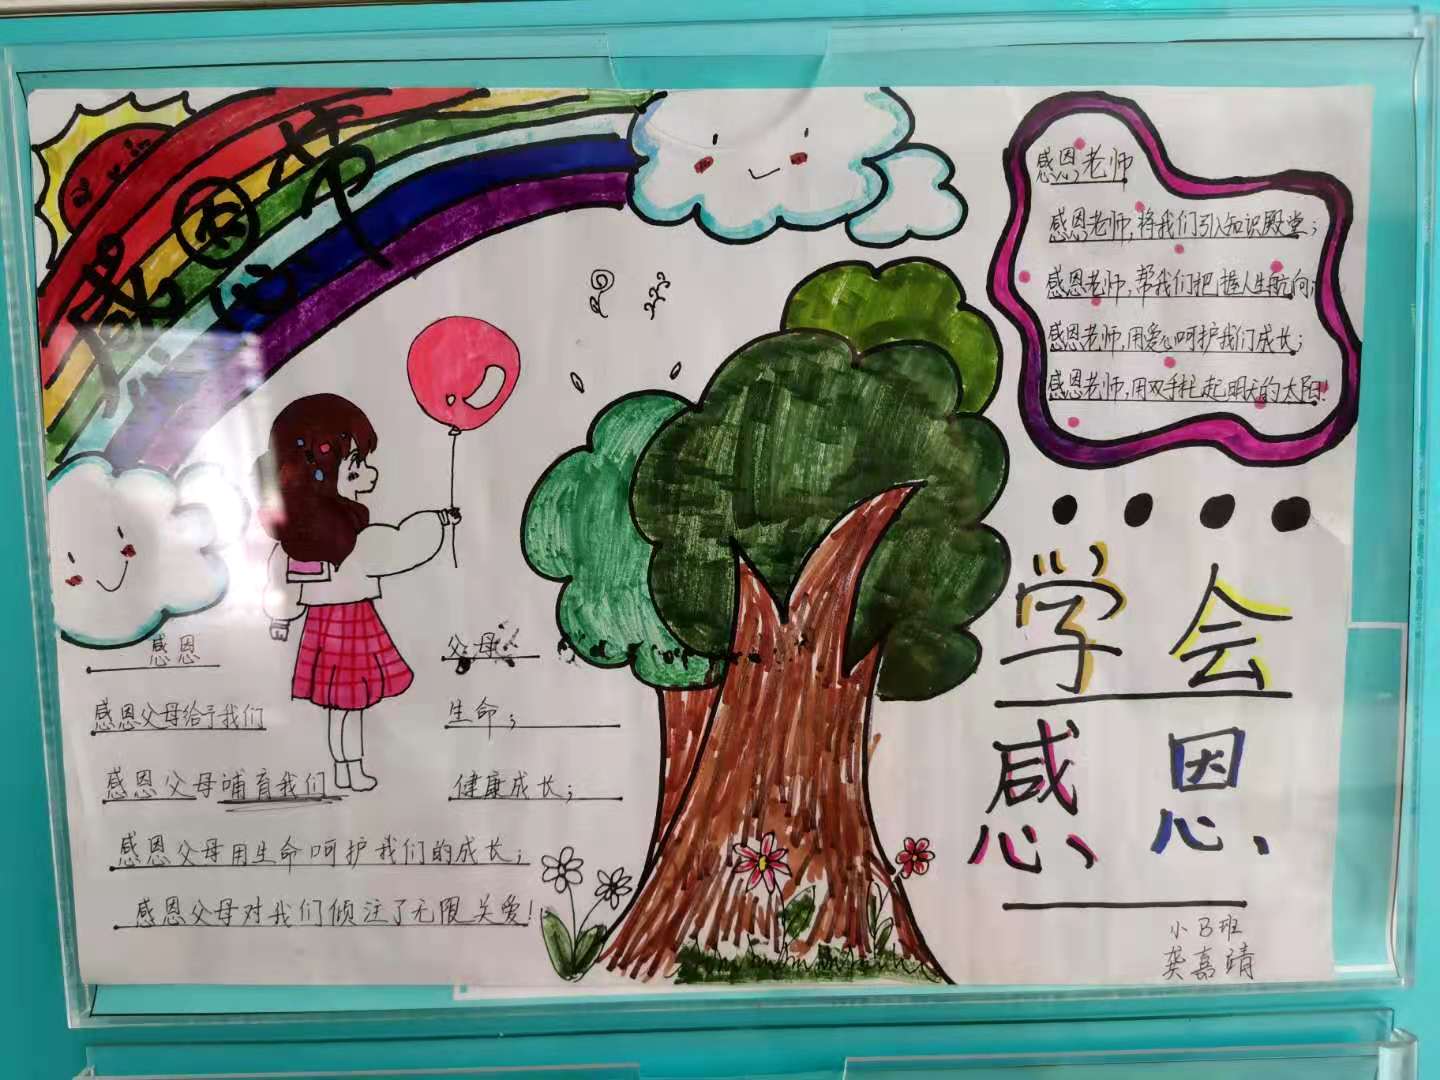 感恩常
心中
感恩老师
感恩老师,将我们引入知识殿堂;
感恩老师,帮我们把握人生航向;
感恩老师,用爱心呵护我们成长;
感恩老师,用双手托起明天的太阳!
学会
感恩
感恩 父母
感恩父母给予我们 生命;
感恩父母哺育我们 健康成长;
感恩父母用生命呵护我们的成长;
感恩父母对我们倾注了无限关爱!
小B班
龚嘉靖